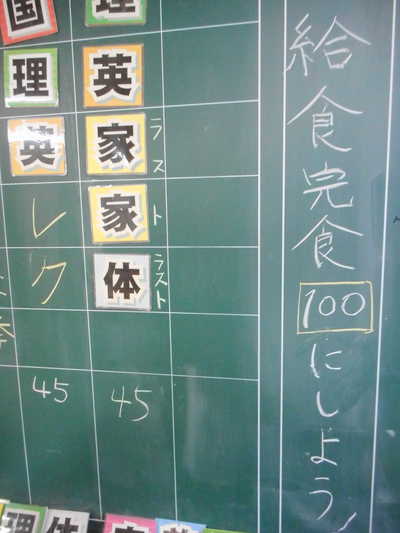 給食完食100にしよう!
理
英
家
ラスト
家
体
ラスト
45
国
理
英
レク
45
理
体